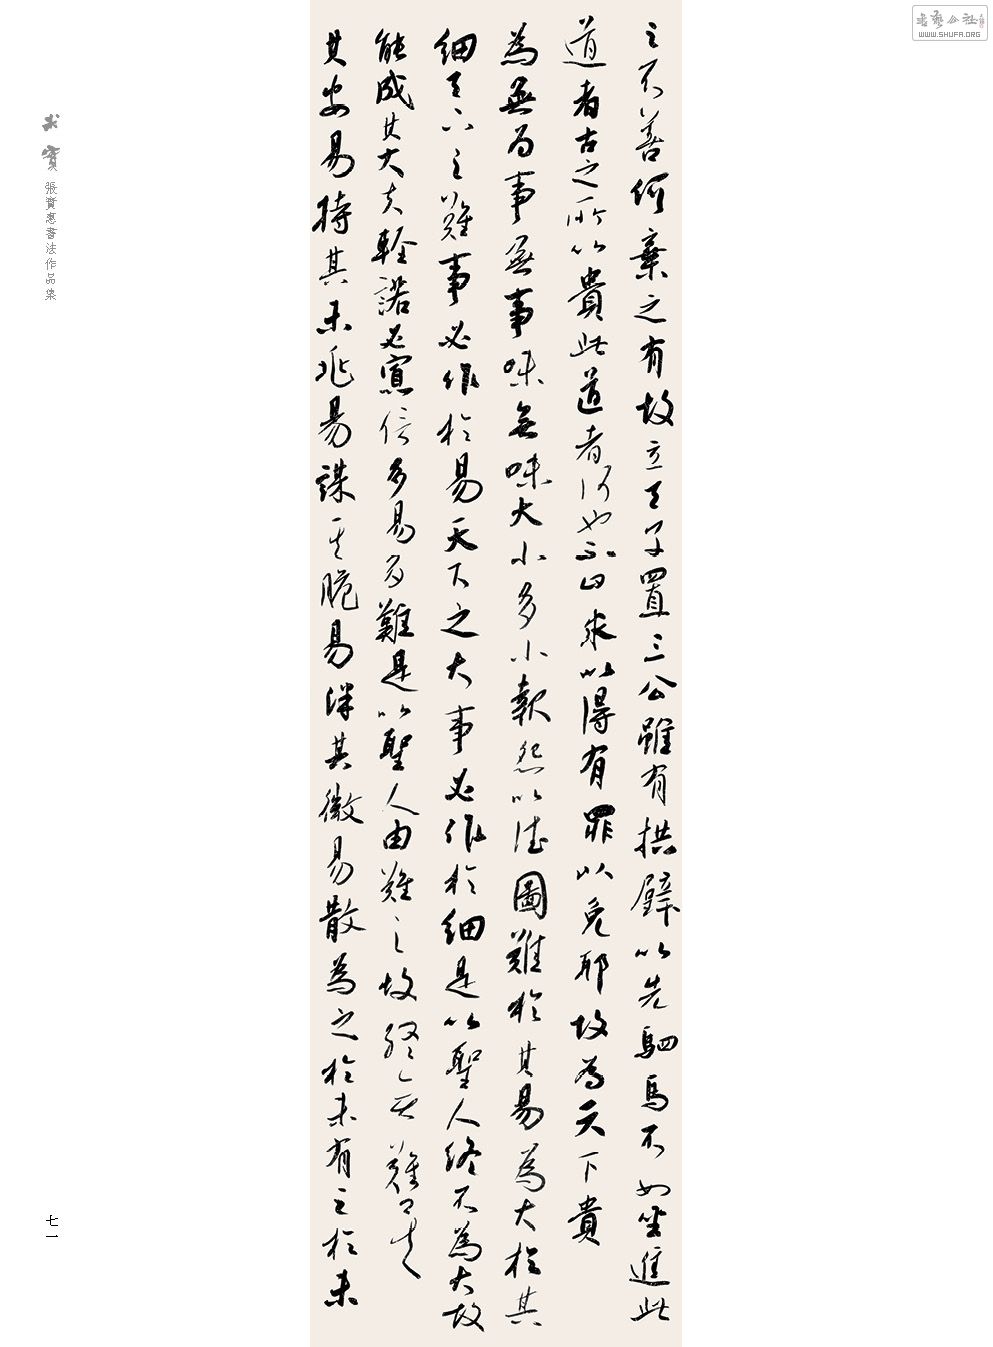 之不善何棄之有故立天子置三公雖有拱璧以先駟馬不如坐進此
道者古之所以貴此道者何也不曰求以得有罪以免耶故為天下貴
為無為事無事味無味大小多小報怨以德圖難於其易為大於其
細天下之難事必作於易天下之大事必作於細是以聖人終不為大故
能成其大夫輕諾必寡信多易多難是以聖人由難之故終无難矣
其安易持其未兆易謀其脆易泮其微易散為之於未有之於未
求實 張實惠書法作品集
七一
書藝公社
WWW.SHUFA.ORG